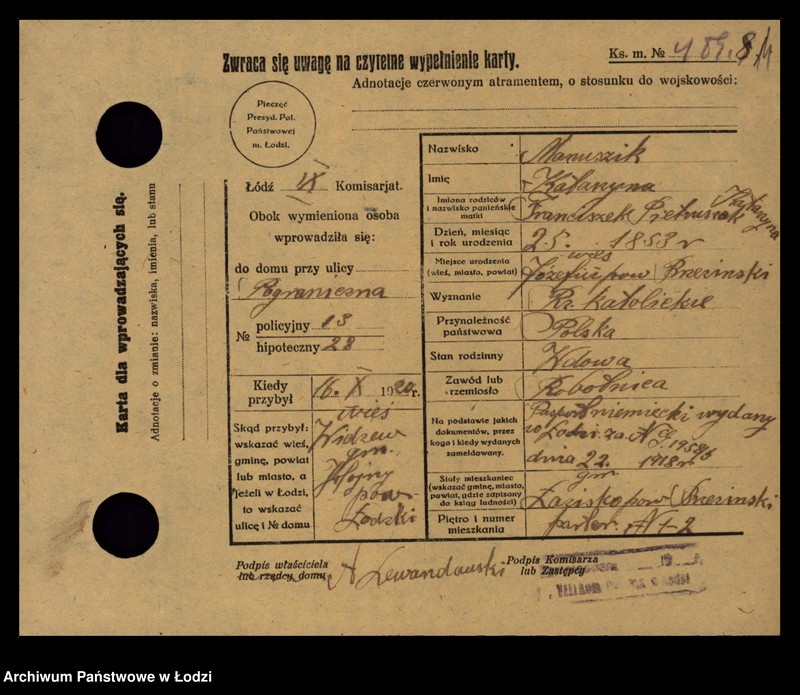 Zwraca się uwagę na czytelne wypełnienie karty.
Ks. m. №
Adnotacje czerwonym atramentem, o stosunku do wojskowości:
Pieczęć
Prezyd. Pol.
Państwowej
m. Łodzi.
Karta dla wprowadzających się.
Adnotacje o zmianie: nazwiska, imienia, lub stanu
Łódź IX Komisarjat.
Obok wymieniona osoba
wprowadziła się:
do domu przy ulicy
Pograniczna
№ policyjny 13
hipoteczny 28
Kiedy przybył 16. X 1920 r.
Skąd przybył:
wskazać wieś,
gminę, powiat
lub miasto, a
jeżeli w Łodzi,
to wskazać
ulicę i № domu
wieś
Widzew
gm.
Chojny
pow.
Łodzki
Nazwisko Manuszik
Imię Katarzyna
Imiona rodziców
i nazwisko panieńskie
matki
Franciszek Pietruszak Katarzyna
Dzień, miesiąc
i rok urodzenia
25. 1853 r
Miejsce urodzenia
(wieś, miasto, powiat)
wieś
Józefów pow Brzezinski
Wyznanie Rz. katolickie
Przynależność
państwowa
Polska
Stan rodzinny Wdowa
Zawód lub
rzemiosło
Robotnica
Na podstawie jakich
dokumentów, przez
kogo i kiedy wydanych
zameldowany.
Paszport niemiecki wydany
w Łodzi za N
dnia 22. 1918 r
Stały mieszkaniec
(wskazać gminę, miasto,
powiat, gdzie zapisany
do ksiąg ludności)
gm.
Łazisko pow Brzezinski
Piętro i numer
mieszkania
parter. N 2
Podpis właściciela
lub rządcy domu
A Lewandowski
Podpis Komisarza
lub Zastępcy
Archiwum Państwowe w Łodzi